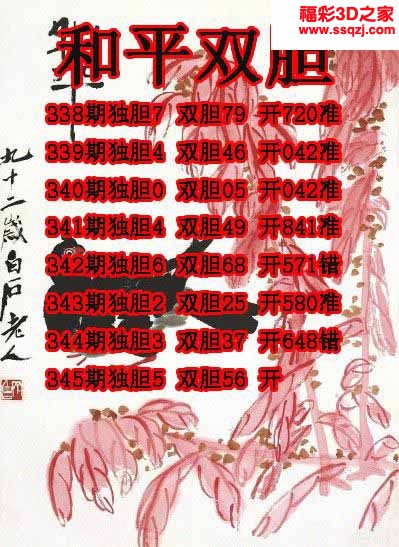 福彩3D之家
www.ssqzj.com
和平双胆
338期独胆7 双胆79 开720准
339期独胆4 双胆46 开042准
340期独胆0 双胆05 开042准
341期独胆4 双胆49 开841准
342期独胆6 双胆68 开571错
343期独胆2 双胆25 开580准
344期独胆3 双胆37 开648错
345期独胆5 双胆56 开
九十二岁白石老人